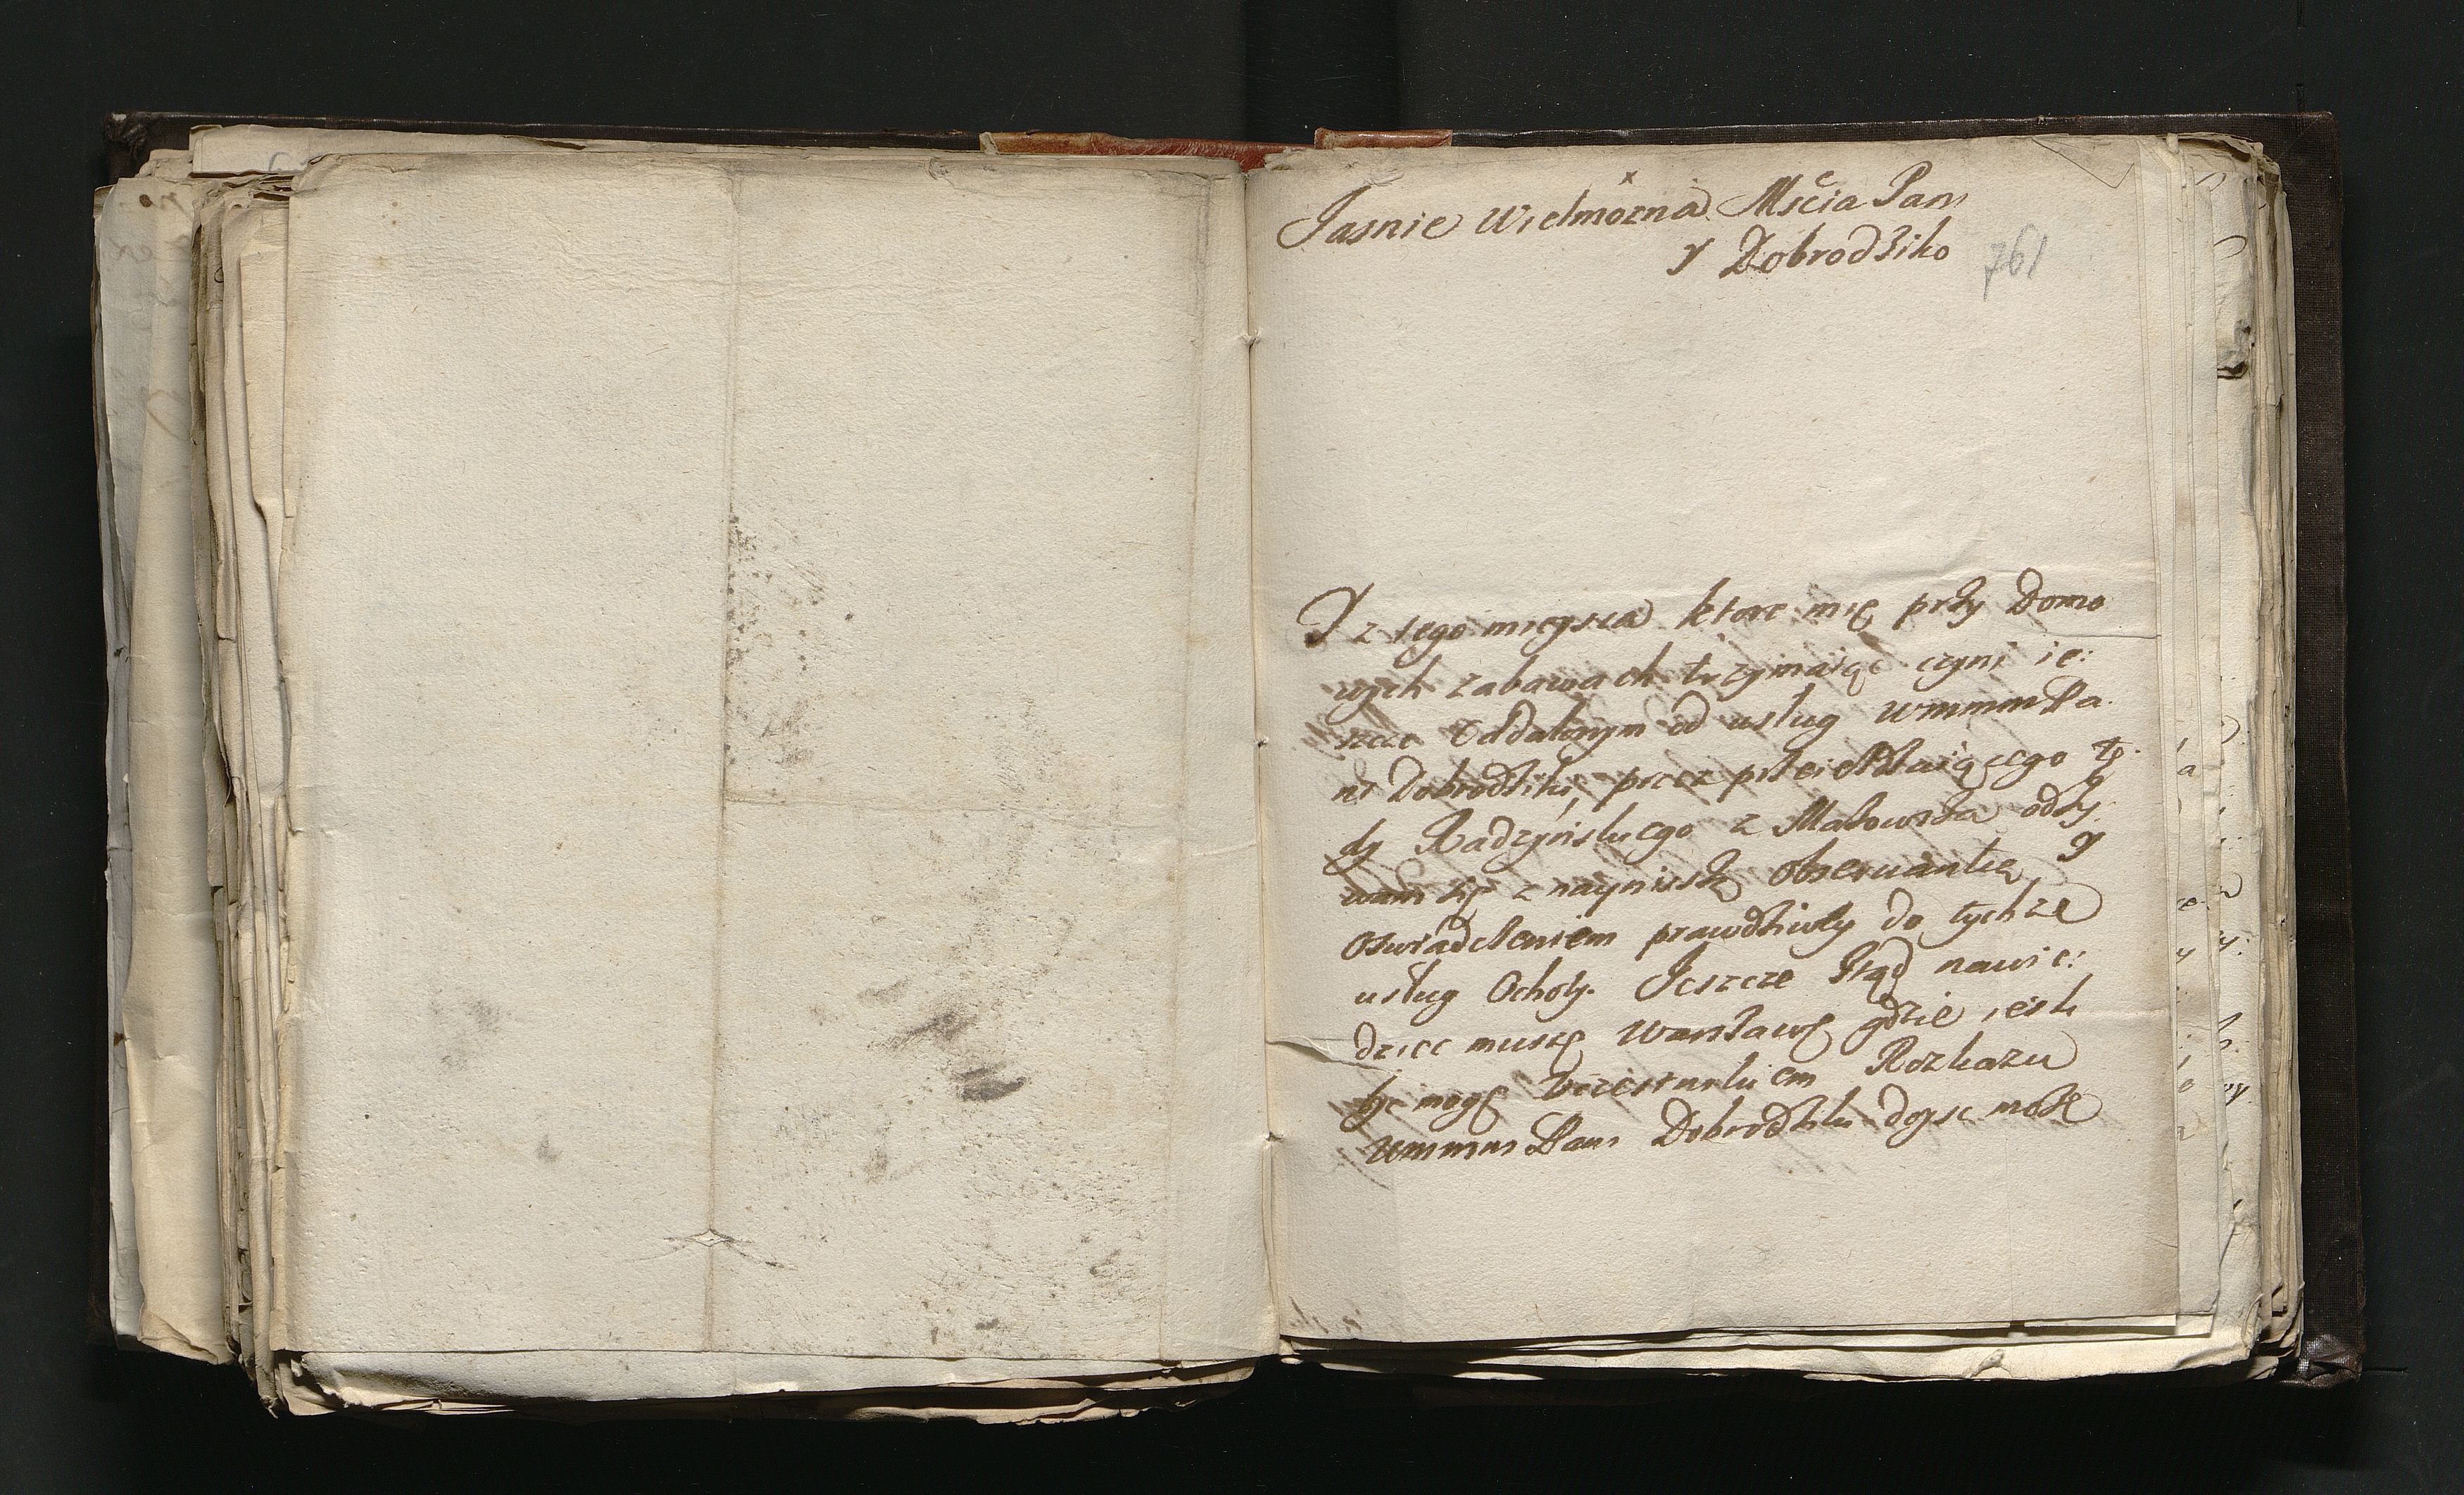 Jasnie Wielmozna Mścia Pani
y Dobrodziko
761
Y z tego mieysca ktore mię przy Domo
wych zabawach trzymaiąc czyni ie:
szcze Oddalonym od usług Wmmm Pa
ni Dobrodziki, przez przeieżdzaiącego tę
dy Radzyńskiego z Makowska odzy
wam się z nayniszą Obserwantią y
Oswiadczeniem prawdziwey do tychze
usług Ochoty. Jeszcze Stąd nawie:
dzic muszę Warszawę gdzie iesli
byc mogę Rozkazu
Wmmm Pani Dobrodziki doysc moze